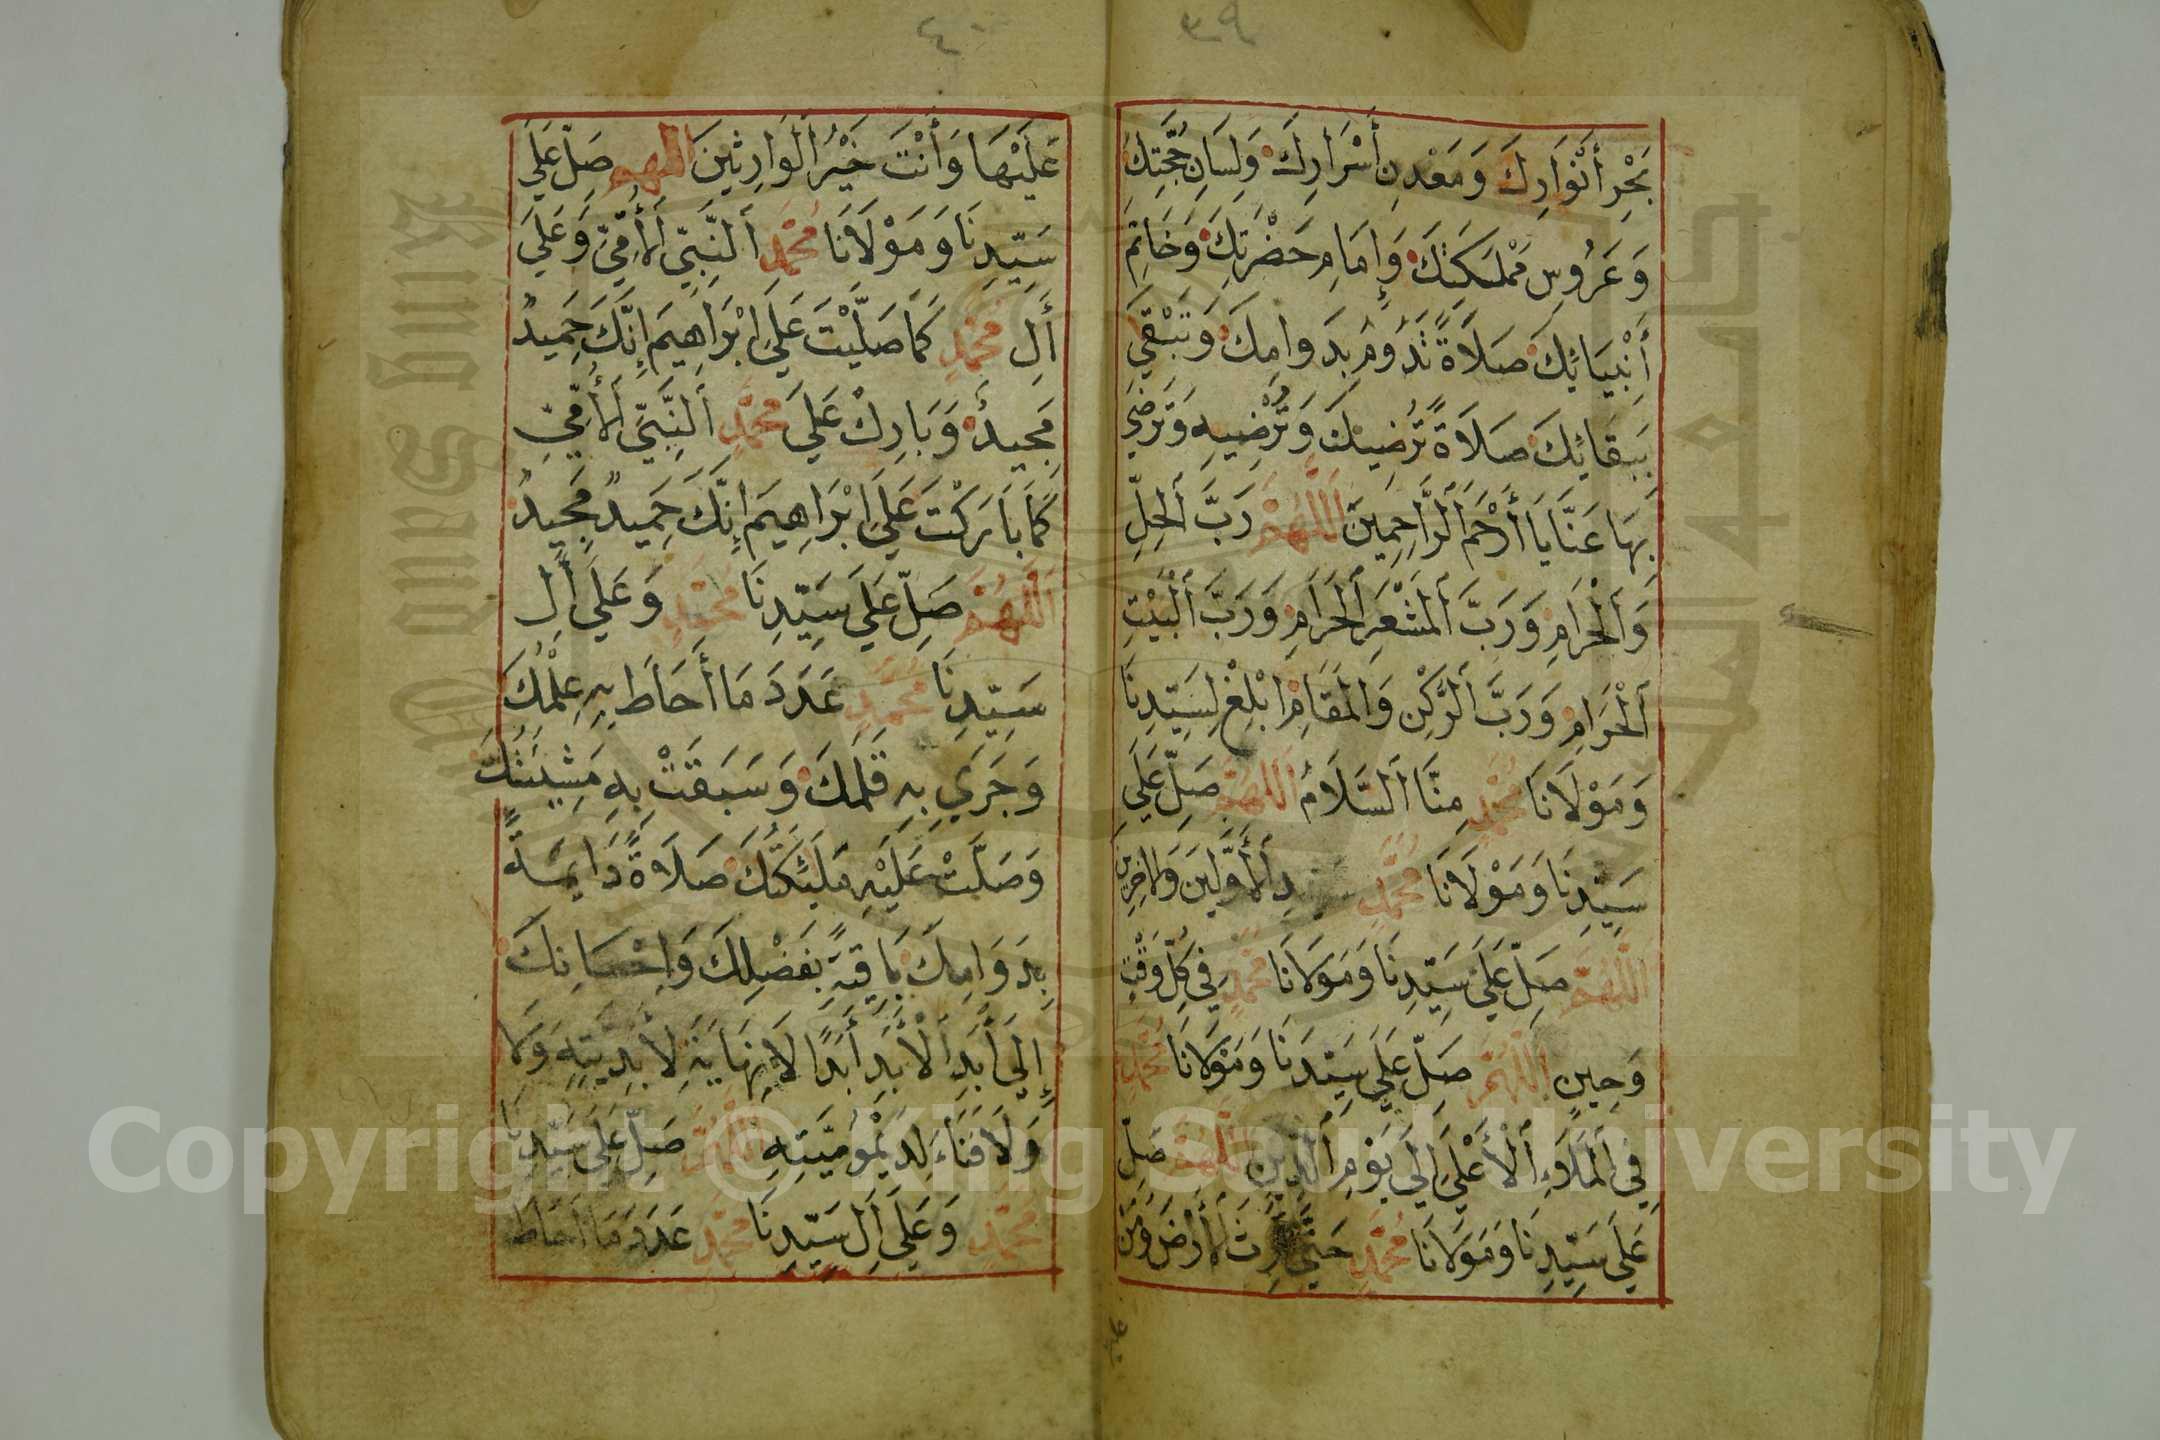 ٣٩
بَحْرِ أَنْوَارِكَ وَمَعْدِنِ أَسْرَارِكَ وَلِسَانِ حُجَّتِكَ
وَعَرُوسِ مَمْلَكَتِكَ وَإِمَامِ حَضْرَتِكَ وَخَاتِمِ
أَنْبِيَائِكَ صَلَاةً تَدُومُ بِدَوَامِكَ وَتَبْقَى
بِبَقَائِكَ صَلَاةً تُرْضِيكَ وَتُرْضِيهِ وَتَرْضَى
بِهَا عَنَّا يَا أَرْحَمَ الرَّاحِمِينَ اَللَّهُمَّ رَبَّ الْحِلِّ
وَالْحَرَامِ وَرَبَّ الْمَشْعَرِ الْحَرَامِ وَرَبَّ الْبَيْتِ
الْحَرَامِ وَرَبَّ الرُّكْنِ وَالْمَقَامِ ابْلِغْ لِسَيِّدِنَا
وَمَوْلَانَا مُحَمَّدٍ مِنَّا السَّلَامُ اَللَّهُمَّ صَلِّ عَلَى
سَيِّدِنَا وَمَوْلَانَا مُحَمَّدٍ سَيِّدِ الْأَوَّلِينَ وَالْاٰخِرِينَ
اَللَّهُمَّ صَلِّ عَلَى سَيِّدِنَا وَمَوْلَانَا مُحَمَّدٍ فِي كُلِّ وَقْتٍ
وَحِينٍ اَللَّهُمَّ صَلِّ عَلَى سَيِّدِنَا وَمَوْلَانَا مُحَمَّدٍ
فِي الْمَلَاءِ الْأَعْلَى إِلَى يَوْمِ الدِّينِ اَللَّهُمَّ صَلِّ
عَلَى سَيِّدِنَا وَمَوْلَانَا مُحَمَّدٍ حَتَّى تَرِثَ الْأَرْضَ وَمَنْ
عليها
٤٠
عَلَيْهَا وَأَنْتَ خَيْرُ الْوَارِثِينَ اللهم صَلِّ عَلَى
سَيِّدِنَا وَمَوْلَانَا مُحَمَّدٍ النَّبِيِّ الْأُمِّيِّ وَعَلَى
أَلِ مُحَمَّدٍ كَمَا صَلَّيْتَ عَلَى ابْرَاهِيمَ إِنَّكَ حَمِيدٌ
مَجِيدٌ وَبَارِكْ عَلَى مُحَمَّدٍ النَّبِيِّ الْأُمِّيِّ
كَمَا بَارَكْتَ عَلَى ابْرَاهِيمَ إِنَّكَ حَمِيدٌ مَجِيدٌ
اَللَّهُمَّ صَلِّ عَلَى سَيِّدِنَا مُحَمَّدٍ وَعَلَى أَلِ
سَيِّدِنَا مُحَمَّدٍ عَدَدَ مَا أَحَاطَ بِهِ عِلْمُكَ
وَجَرَى بِهِ قَلَمُكَ وَسَبَقَتْ بِهِ مَشِيئَتُكَ
وَصَلَّتْ عَلَيْهِ مَلَئِكَتُكَ صَلَاةً دَائِمَةً
بِدَوَامِكَ بَاقِيَةً بِفَضْلِكَ وَاِحْسَانِكَ
إِلَى أَبَدِ الْأَبَدِ أَبَدًا لَا نِهَايَةَ لِأَبَدِيَّتِهِ وَلَا
وَلَا فَنَاءَ لِدَيْمُومِيَّتِهِ اَللَّهُمَّ صَلِّ عَلَى سَيِّدِنَا
مُحَمَّدٍ وَعَلَى اَلِ سَيِّدِنَا مُحَمَّدٍ عَدَدَ مَا اَحَاطَ
King Saud University
Copyright © King Saud University